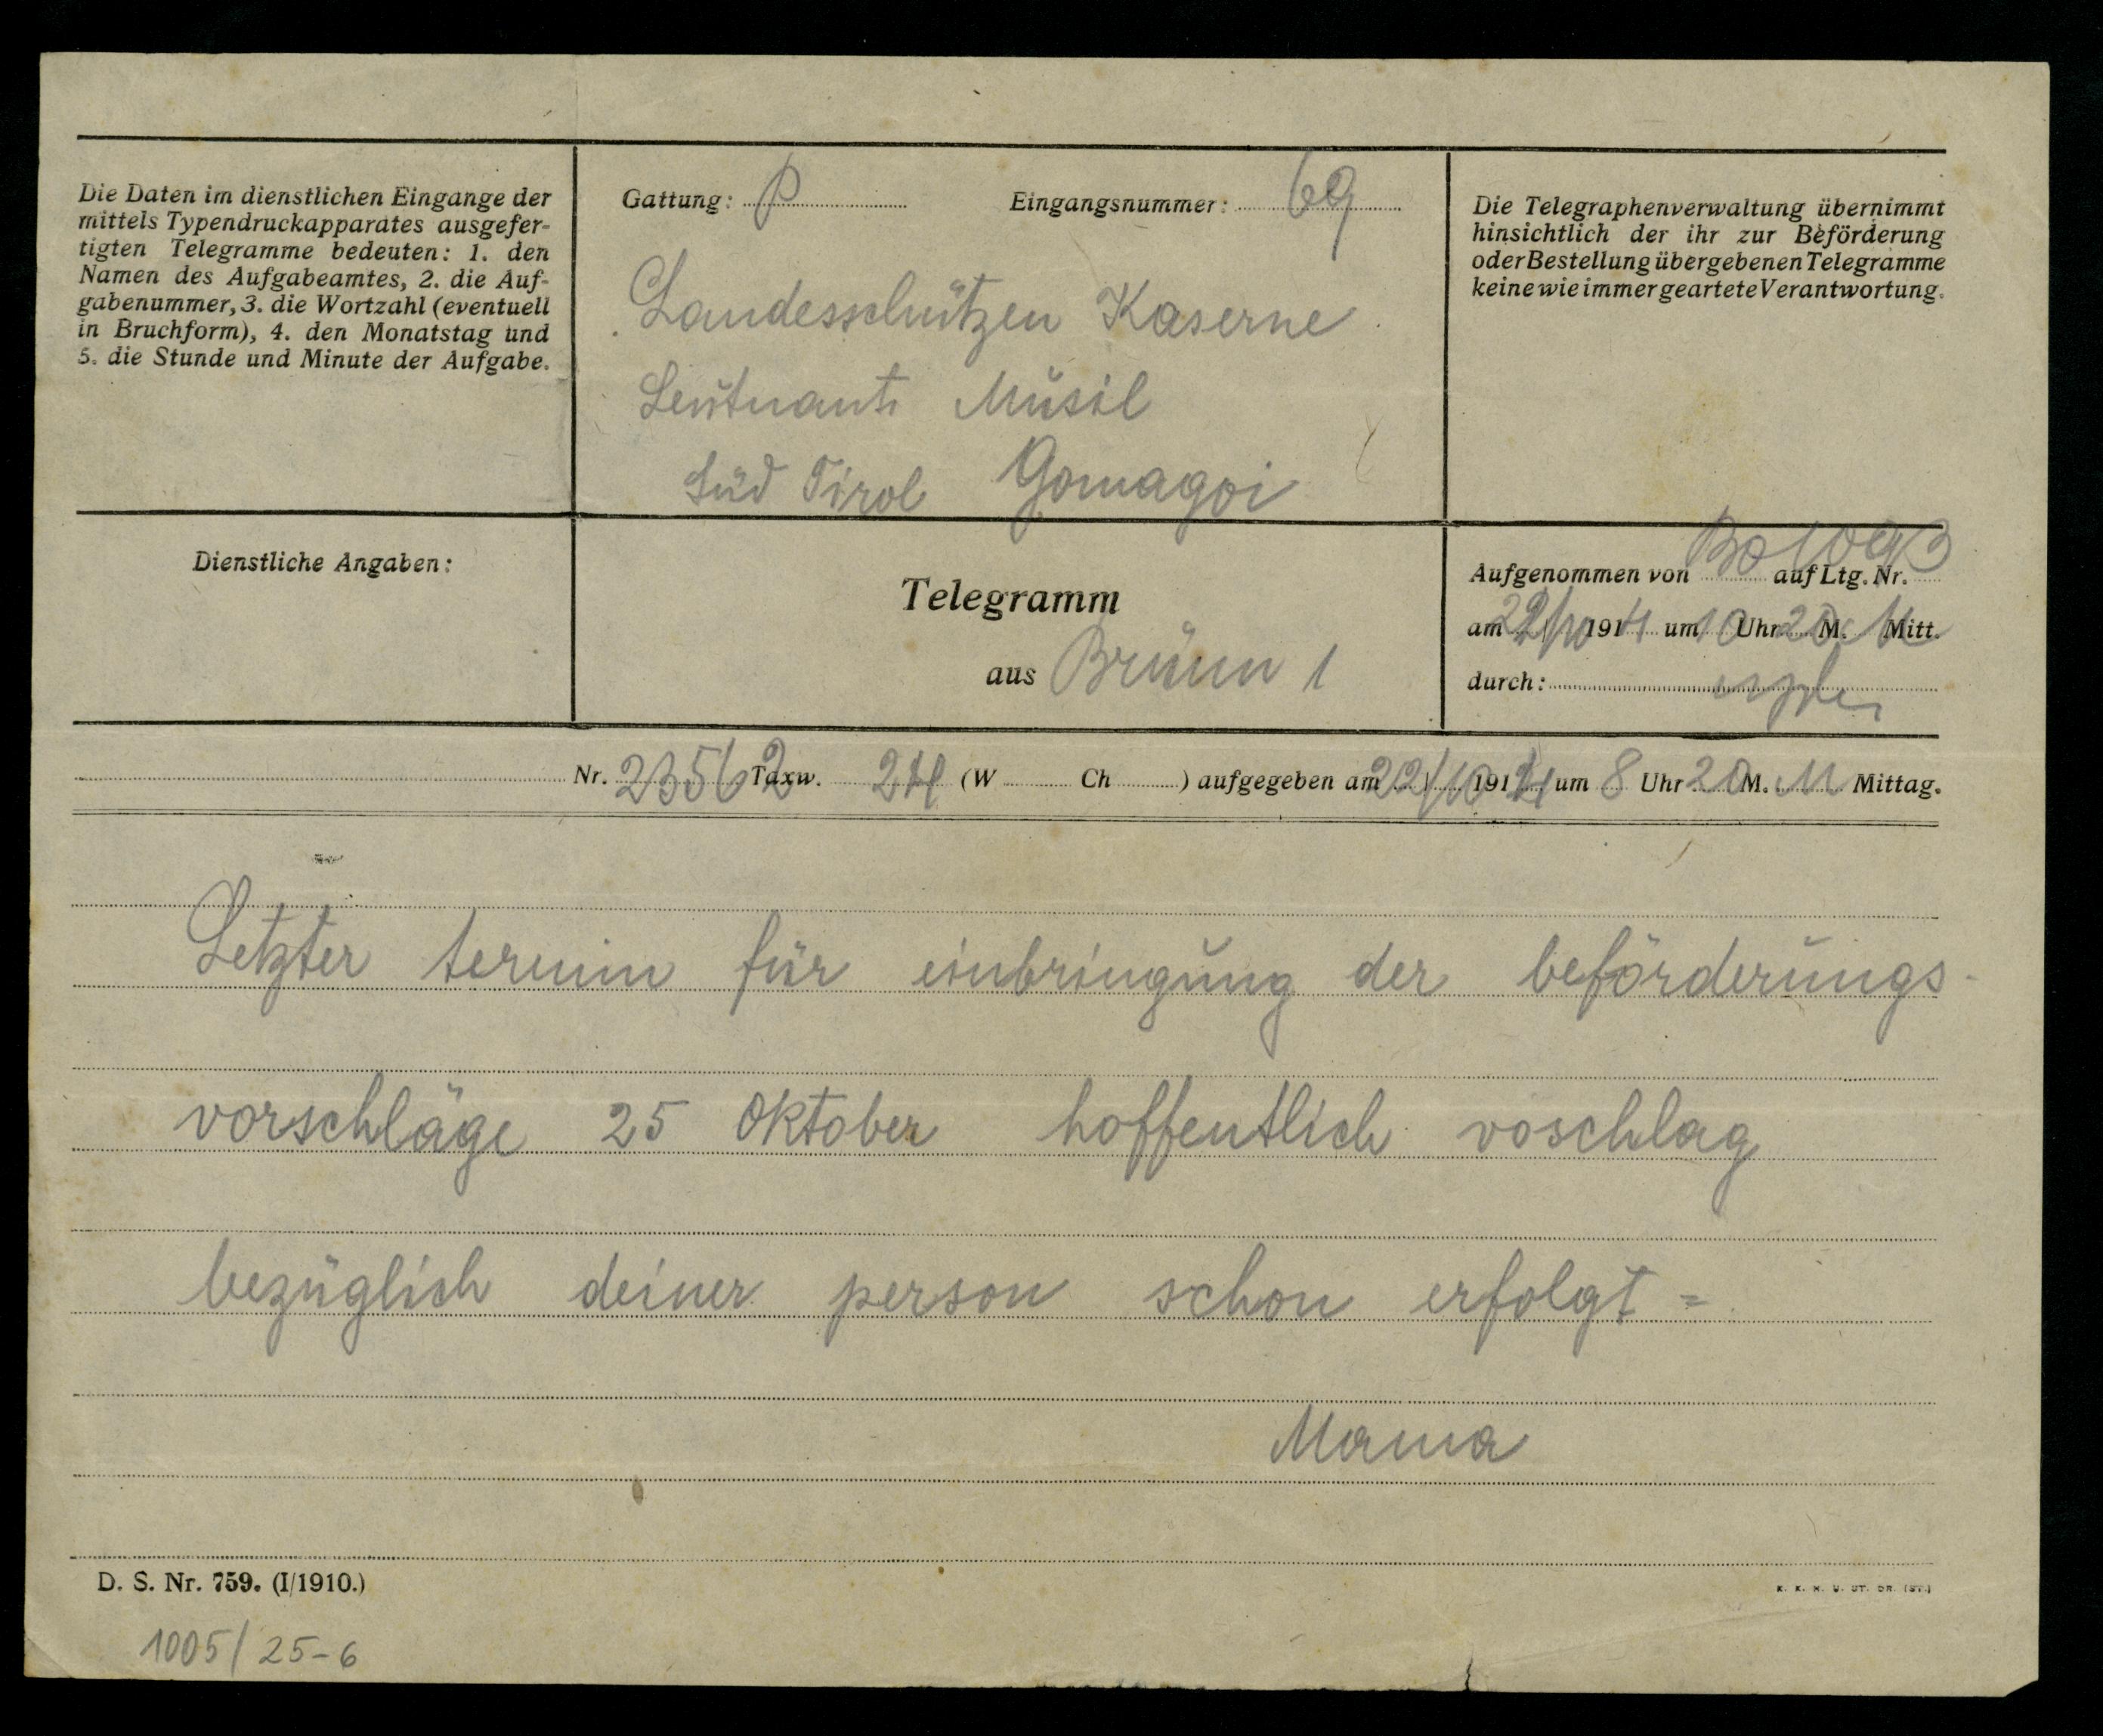 Die Daten im dienstlichen Eingange der
mittels Typendruckapparates ausgefer-
tigten Telegramme bedeuten: 1. den
Namen des Aufgabeamtes, 2. die Auf-
gabenummer, 3. die Wortzahl (eventuell
in Bruchform), 4. den Monatstag und
5. die Stunde und Minute der Aufgabe.
Gattung: P Eingangsnummer: 69
Landesschützen Kaserne
Leutnant Musil
Süd Tirol Gomagoi
Die Telegraphenverwaltung übernimmt
hinsichtlich der ihr zur Beförderung
oder Bestellung übergebenen Telegramme
keine wie immer geartete Verantwortung.
Dienstliche Angaben:
Telegramm
aus Brünn 1
Aufgenommen von auf Ltg. Nr.
am 22/10 1914 um 10 Uhr 20 M. Mitt.
durch:
Nr. 23562 Taxw. 24 (W Ch ) aufgegeben am 22/10 1914 um 8 Uhr 20 M. M Mittag.
Letzter termin für einbringung der beförderungs-
vorschläge 25 Oktober hoffentlich voschlag
bezüglich deiner person schon erfolgt =
Mama
D. S. Nr. 759. (I/1910.)
K. K. H. U. ST. DR. (ST.)
1005/25-6